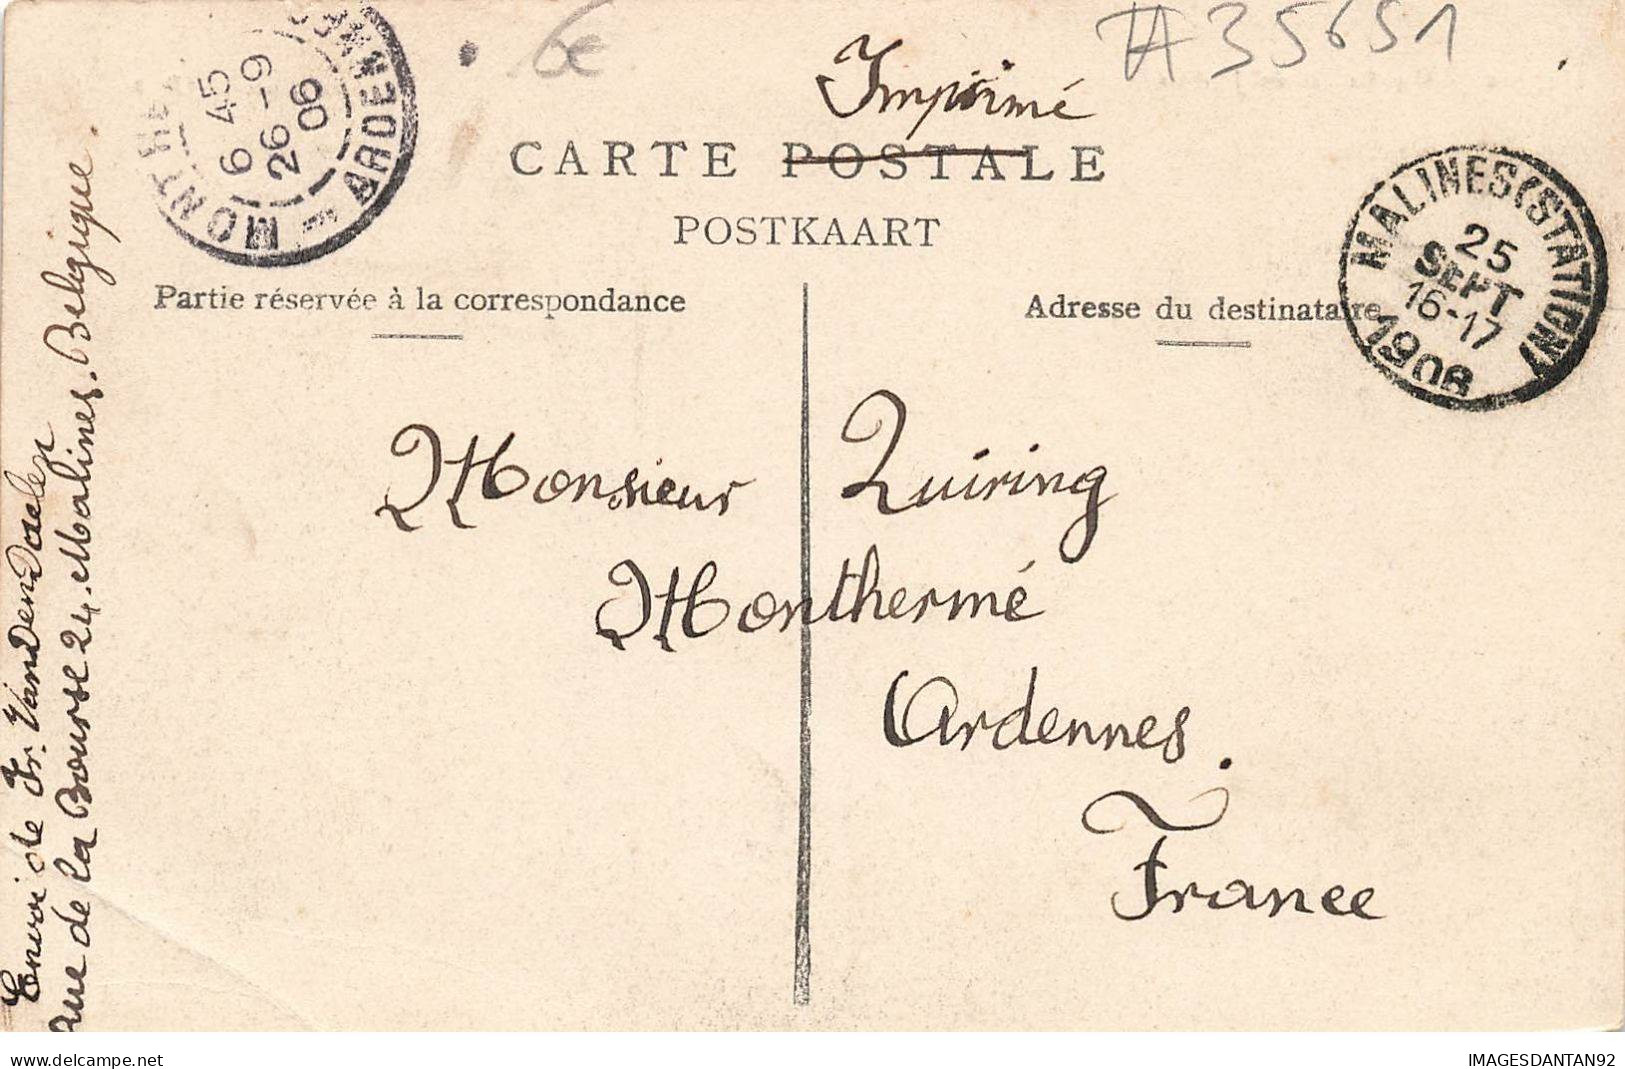 6€
#35651
Imprimé
CARTE POSTALE
POSTKAART
Partie réservée à la correspondance
Adresse du destinataire
MALINES (STATION)
25
SEPT
16-17
1906
6 45
26-9
06
ARDENNES
Monsieur Quiring
Monthermé
Ardennes.
France
Envoi de Fr. VandenDaelen
Rue de la Bourse 24. Malines. Belgique.
delcampe.net
IMAGESDANTAN92